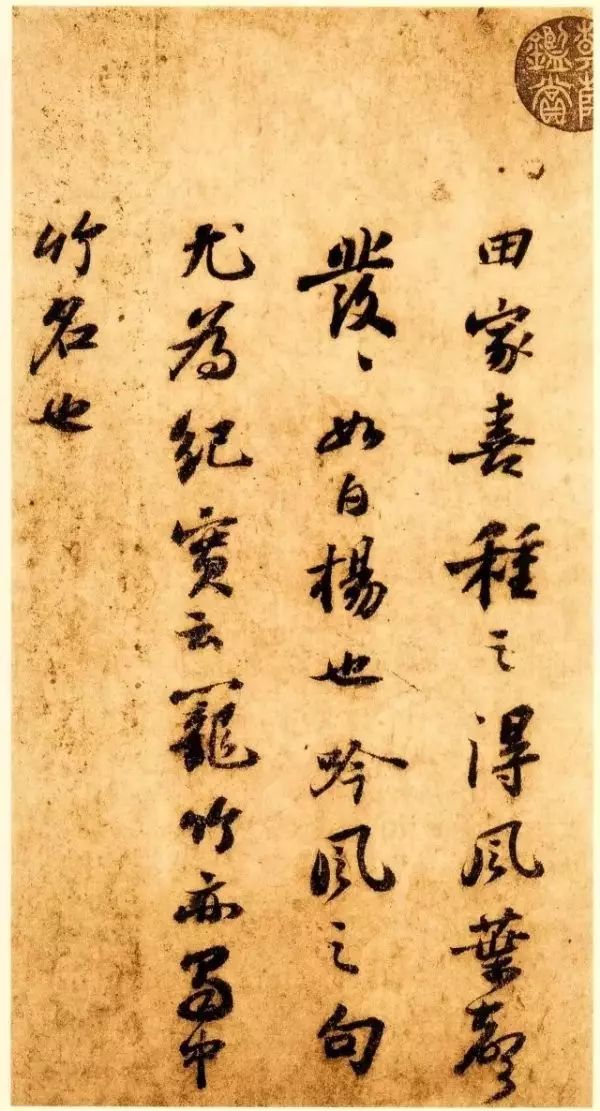 鑑賞
田家喜種之得風葉聲
發〻如白楊也吟風之句
尤為紀實云籠竹亦蜀中
竹名也